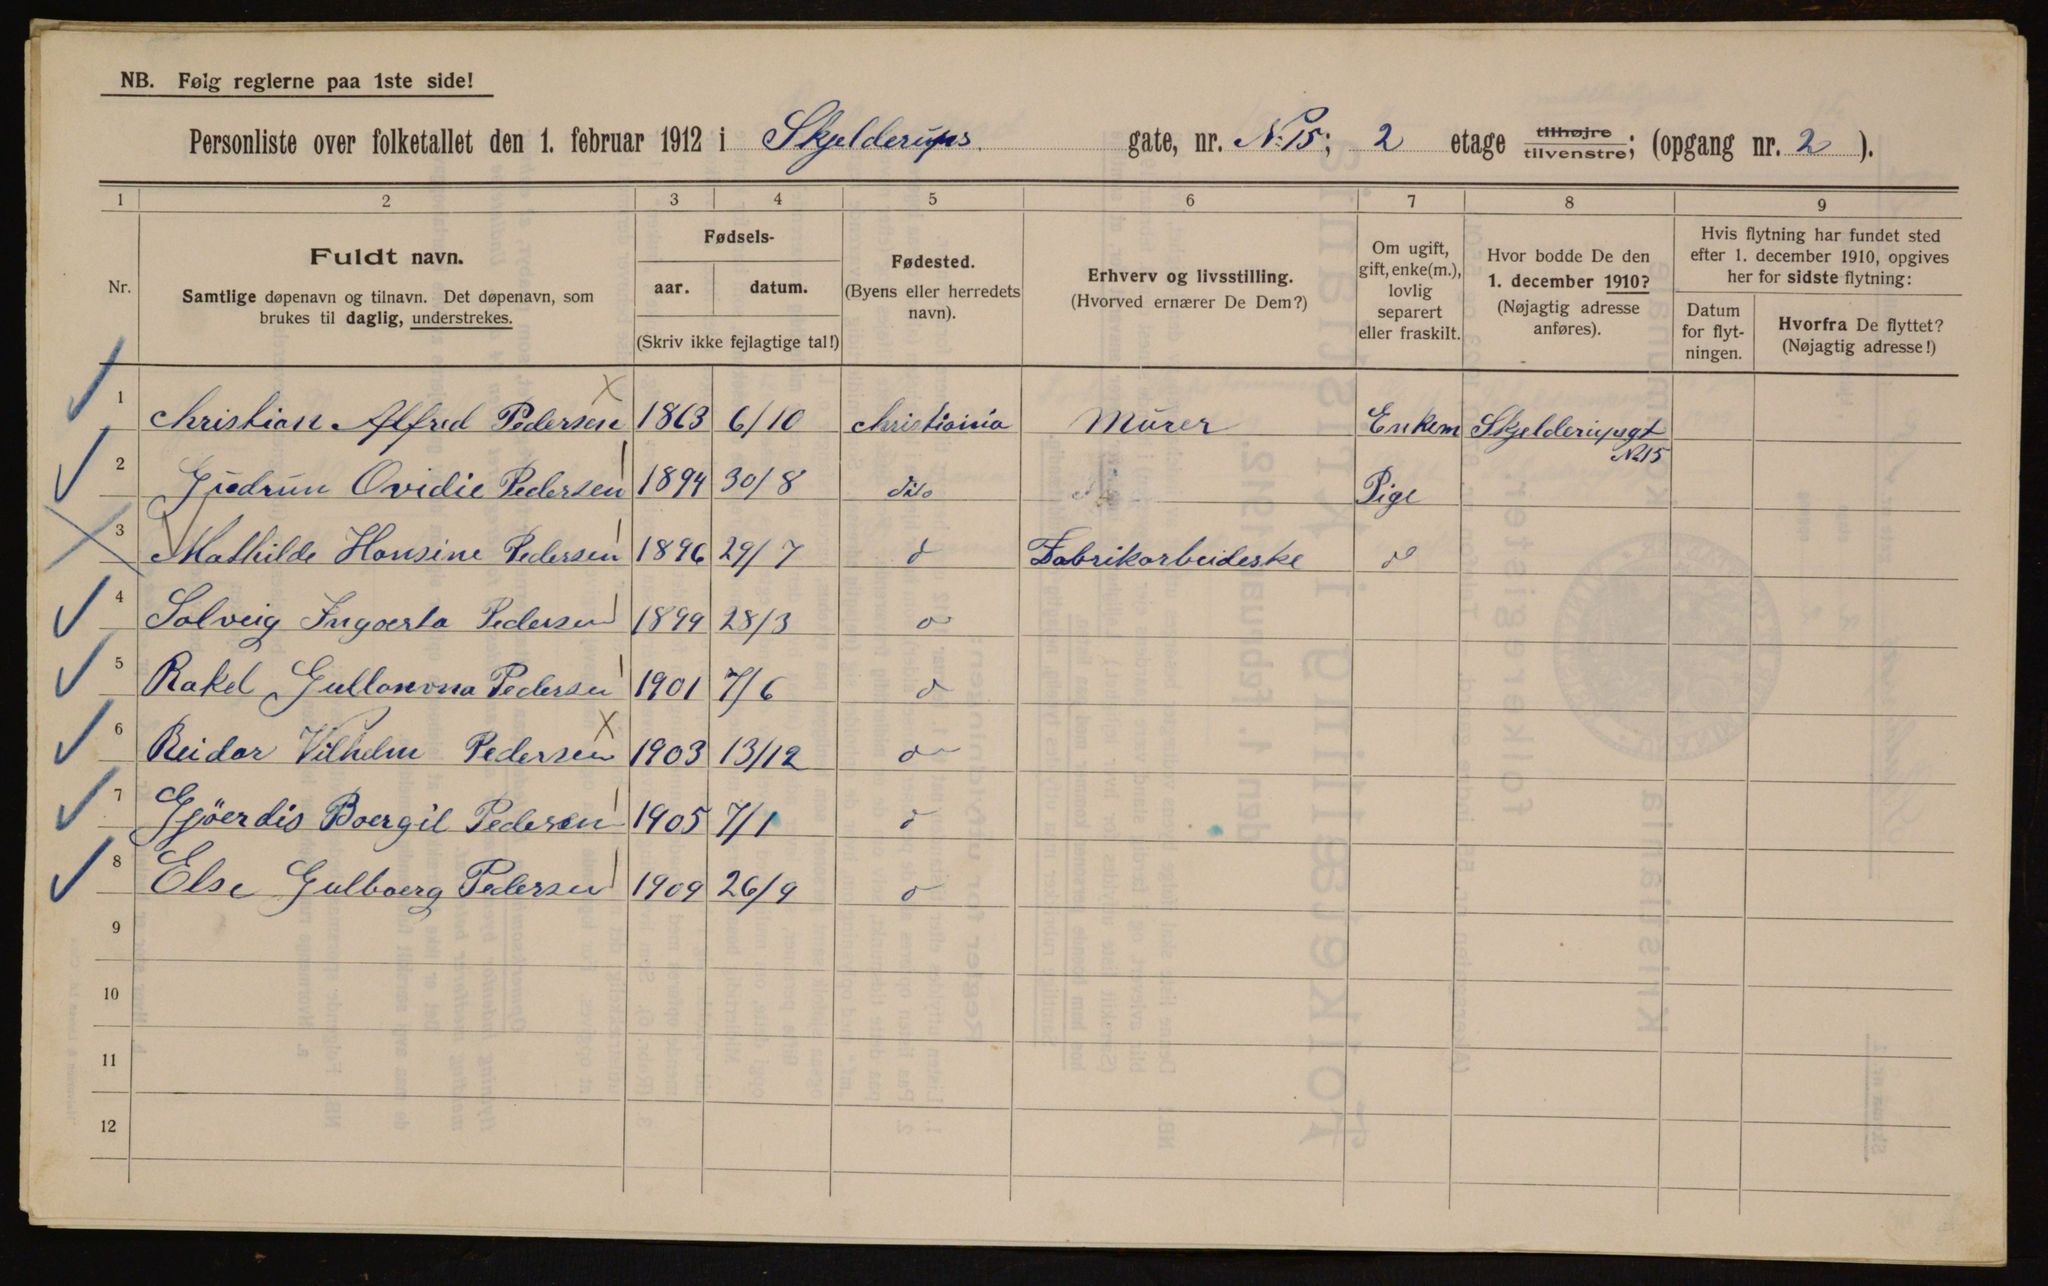 NB. Følg reglerne paa 1ste side!
Personliste over folketallet den 1. februar 1912 i Skjelderups gate, nr. No 15; 2 etage tilhøjre tilvenstre; (opgang nr. 2 ).
1 2 3 4 5 6 7 8 9
Nr.
Fuldt navn.
Samtlige døpenavn og tilnavn. Det døpenavn, som
brukes til daglig, understrekes.
Fødsels-
aar. datum.
(Skriv ikke fejlagtige tal!)
Fødested.
(Byens eller herredets
navn).
Erhverv og livsstilling.
(Hvorved ernærer De Dem?)
Om ugift,
gift, enke(m.),
lovlig
separert
eller fraskilt.
Hvor bodde De den
1. december 1910?
(Nøjagtig adresse
anføres).
Hvis flytning har fundet sted
efter 1. december 1910, opgives
her for sidste flytning:
Datum
for flyt-
ningen.
Hvorfra De flyttet?
(Nøjagtig adresse!)
1 Christian Alfred Pedersen 1863 6/10 Christiania Murer Enkem Skjelderupsgt
No 15
2 Gudrun Ovidie Pedersen 1894 30/8 dito Pige
3 Mathilde Hansine Pedersen 1896 29/7 d Fabrikarbeideske d
4 Solveig Ingoerta Pedersen 1899 28/3 d
5 Rakel Gullanna Pedersen 1901 7/6 d
6 Reidar Vilhelm Pedersen 1903 13/12 d
7 Gjöerdis Boergil Pedersen 1905 7/1 d
8 Else Gulboerg Pedersen 1909 26/9 d
9
10
11
12